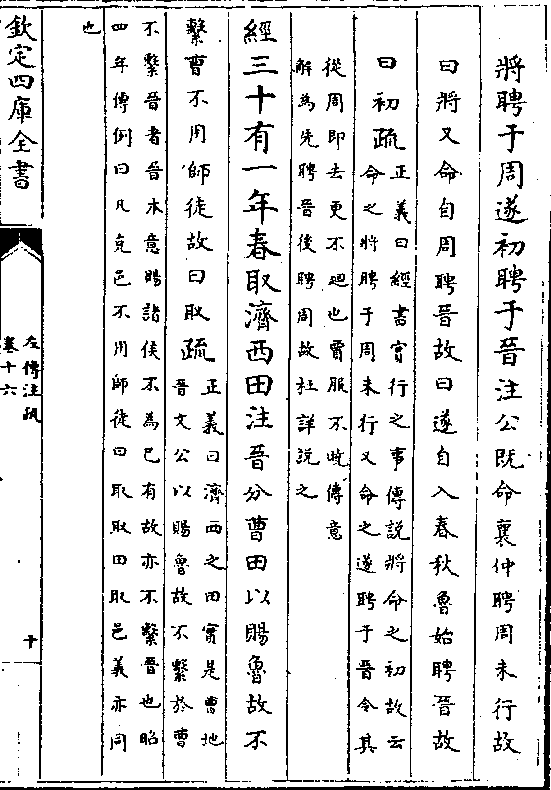 將聘于周遂初聘于晉注公既命襄仲聘周未行故
曰將又命自周聘晉故曰遂自入春秋魯始聘晉故
曰初疏正義曰經書實行之事傳說將命之初故云
命之將聘于周未行又命之遂聘于晉令其
從周即去更不迴也賈服不曉傳意
解為先聘晉後聘周故杜詳說之
經三十有一年春取濟西田注晉分曹田以賜魯故不
繫曹不用師徒故曰取疏正義曰濟西之田實是曹地
晉文公以賜魯故不繫於曹
不繫晉者晉本意賜諸侯不為已有故亦不繫晉也昭
四年傳例曰凡克邑不用師徒曰取取田取邑義亦同
也
欽定四庫全書
左傳注疏
卷十六
十